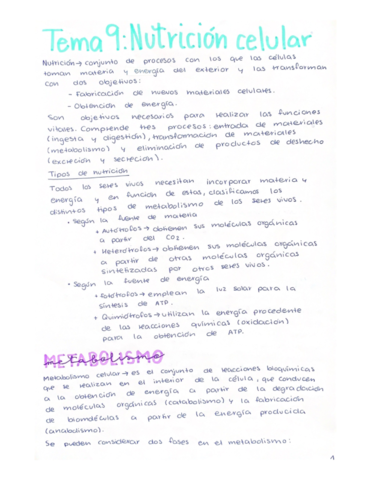 Tema 9: Nutrición celular
Nutrición → conjunto de procesos con los que las células
toman materia y energía del exterior y las transforman
con dos objetivos:
- Fabricación de nuevos materiales celulares.
- Obtención de energía.
Son objetivos necesarios para realizar las funciones
vitales. Comprende tres procesos: entrada de materiales
(ingesta y digestión), transformación de materiales
(metabolismo) y eliminación de productos de deshecho
(excreción y secreción).
Tipos de nutrición
Todos los seres vivos necesitan incorporar materia y
energía y en función de estas, clasificamos los
distintos tipos de metabolismo de los seres vivos.
• Según la fuente de materia
+ Autótrofos → obtienen sus moléculas orgánicas
a partir del CO2.
+ Heterótrofos → obtienen sus moléculas orgánicas
a partir de otras moléculas orgánicas
sintetizadas por otros seres vivos.
• Según la fuente de energía
+ Fotótrofos → emplean la luz solar para la
síntesis de ATP.
+ Quimiótrofos → utilizan la energía procedente
de las reacciones químicas (oxidación)
para la obtención de ATP.
METABOLISMO
metabolismo
Metabolismo celular → es el conjunto de reacciones bioquímicas
que se realizan en el interior de la célula, que conducen
a la obtención de energía a partir de la degradación
de moléculas orgánicas (catabolismo) y la fabricación
de biomoléculas a partir de la energía producida
(anabolismo).
Se pueden considerar dos fases en el metabolismo:
1